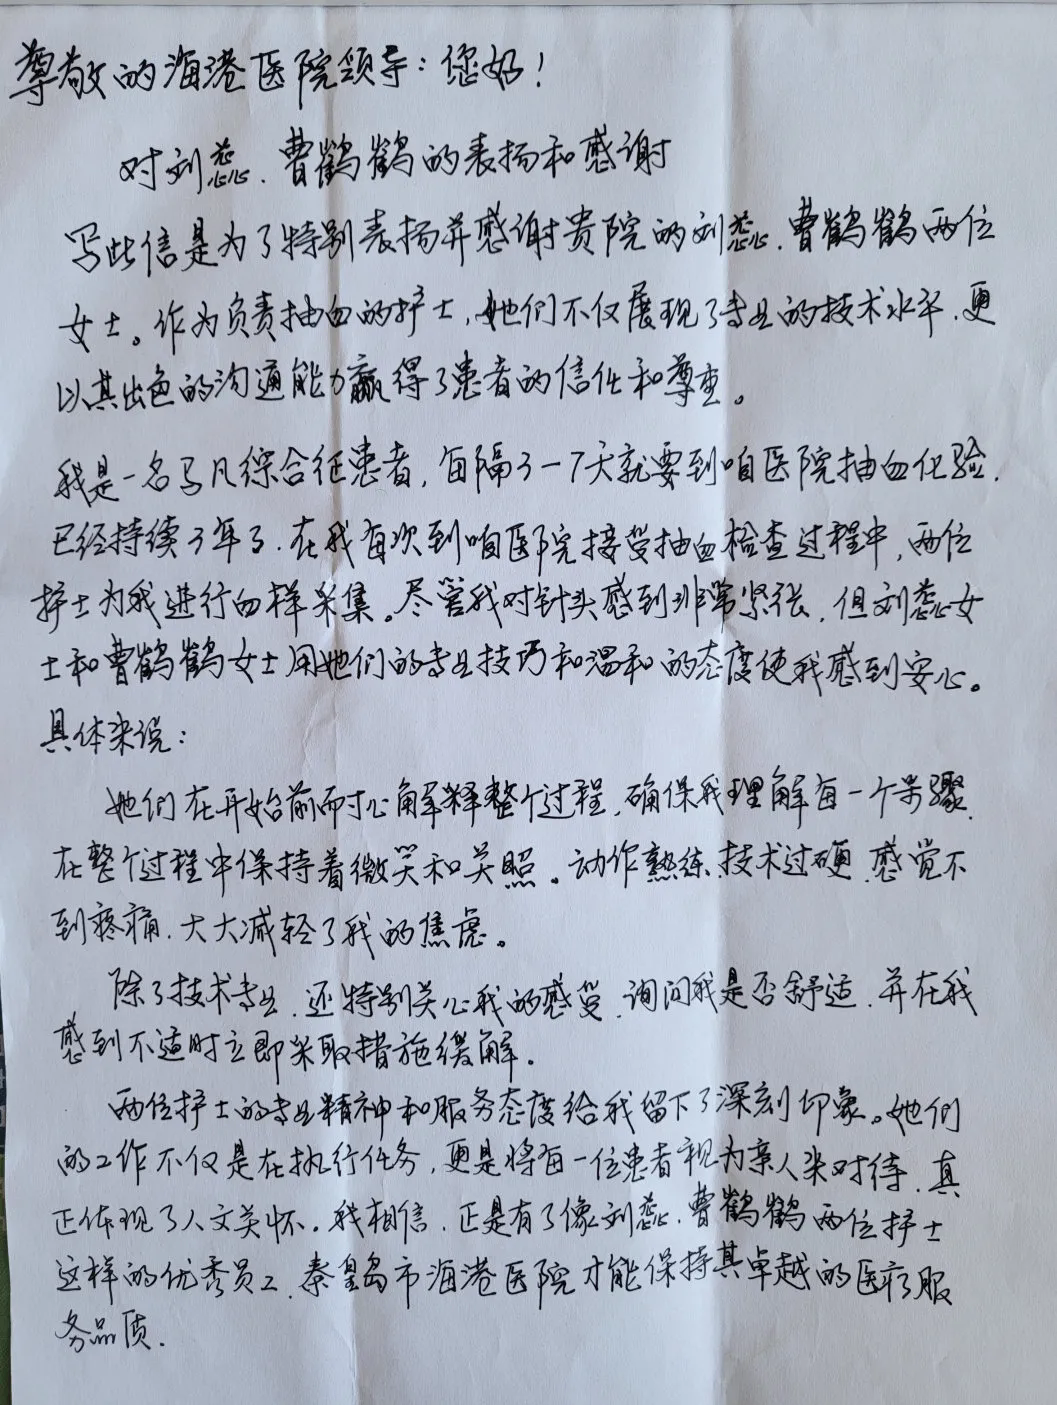 尊敬的海港医院领导：您好！
对刘蕊、曹鹤鹤的表扬和感谢
写此信是为了特别表扬并感谢贵院的刘蕊、曹鹤鹤两位
女士。作为负责抽血的护士，她们不仅展现了专业的技术水平，更
以其出色的沟通能力赢得了患者的信任和尊重。
我是一名马凡综合征患者，每隔3-7天就要到咱医院抽血化验，
已经持续3年了。在我每次到咱医院接受抽血检查过程中，两位
护士为我进行血样采集。尽管我对针头感到非常紧张，但刘蕊女
士和曹鹤鹤女士用她们的专业技巧和温和的态度使我感到安心。
具体来说：
她们在开始前耐心解释整个过程，确保我理解每一个步骤，
在整个过程中保持着微笑和关照。动作熟练、技术过硬，感觉不
到疼痛，大大减轻了我的焦虑。
除了技术专业，还特别关心我的感受，询问我是否舒适，并在我
感到不适时立即采取措施缓解。
两位护士的专业精神和服务态度给我留下了深刻印象。她们
的工作不仅是在执行任务，更是将每一位患者视为亲人来对待，真
正体现了人文关怀。我相信，正是有了像刘蕊、曹鹤鹤两位护士
这样的优秀员工，秦皇岛市海港医院才能保持其卓越的医疗服
务品质。